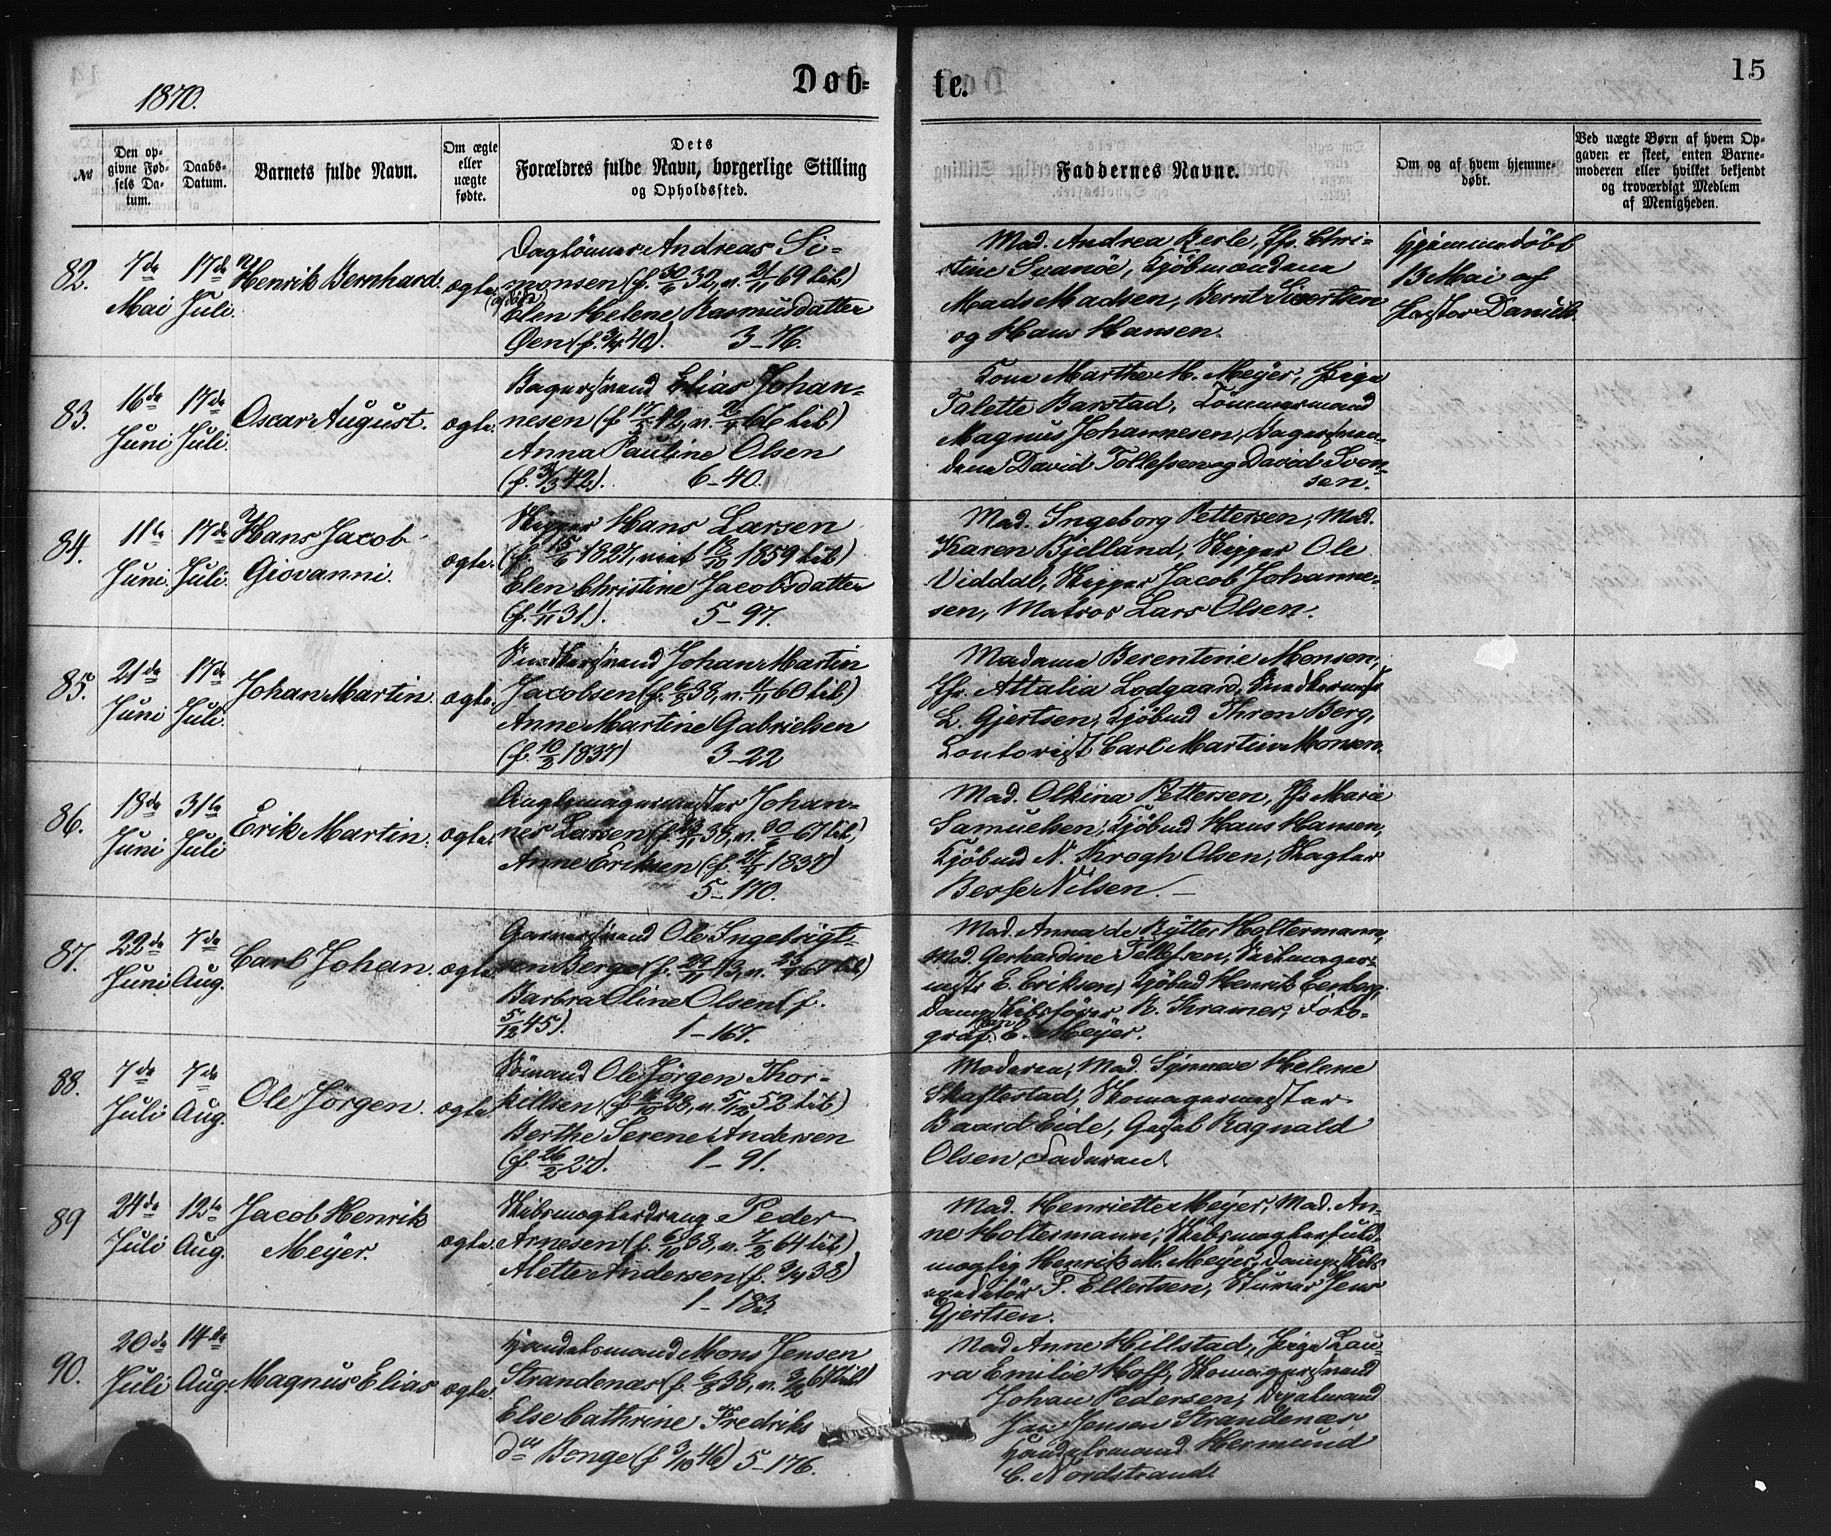 1870.
Døb-
te.
15
№
Den op-
givne Fød-
sels Da-
tum.
Daabs-
Datum.
Barnets fulde Navn.
Om ægte
eller
uægte
fødte.
Dets
Forældres fulde Navn, borgerlige Stilling
og Opholdssted.
Faddernes Navne.
Om og af hvem hjemme-
døbt.
Ved uægte Børn af hvem Op-
gaven er skeet, enten Barne-
moderen eller hvilket bekjendt
og troværdigt Medlem
af Menigheden.
82.
7de
Mai
17de
Juli.
Henrik Bernhard.
ægte.
Daglønner Andreas Si-
monsen (f. 30/6 32, v. 21/11 69 lib)
Elen Helene Rasmusdatter
Øen (f. 3/4 40). 3-76.
Mad. Andrea Berle, Jfr. Chri-
stine Svanöe, Kjöbmændene
Mads Madsen, Bernt Sivertsen
og Hans Hansen.
Hjemmedöbt
13 Mai af
Pastor Daniels.
83.
16de
Juni
17de
Juli.
Oscar August.
ægte.
Bagersvend Elias Johan-
nesen (f. 17/2 42, v. 26/4 66 lib)
Anna Pauline Olsen
(f. 3/3 42). 6-40.
Kone Marthe M. Meÿer, Pige
Talette Barstad, Tömmermand
Magnus Johannesen, Bagersven-
dene David Tollefsen og David Svon-
sen.
84.
11te
Juni
17de
Juli.
Hans Jacob
Giovanni.
ægte.
Skipper Hans Larsen
(f. 15/6 1827, viet 16/10 1859 lib)
Elen Christine Jacobsdatter
(f. 11/11 31). 5-97.
Mad. Ingeborg Pettersen, Mad.
Karen Bjelland, Skipper Ole
Viddal, Skipper Jacob Johanne-
sen, Matros Lars Olsen.
85.
21de
Juni
17de
Juli.
Johan Martin.
ægte.
Snedkersvend Johan Martin
Jacobsen (f. 6/2 38, v. 4/11 60 lib)
Anne Martine Gabrielsen
(f. 10/2 1837) 3-22
Madame Berentine Monsen,
Jfr. Attalia Lodgaard, Snedkermstr
L. Gjertsen, Kjöbmd Thron Berg,
Contorist Carl Martin Monsen.
86.
18de
Juni
31te
Juli
Erik Martin.
ægte.
johan-
nes Larsen (f. 23/11 38, v. 30/6 67 lib)
Anne Eriksen (f. 27/4 1837)
5-170.
Mad. Olkina Pettersen, Jfr Marie
Samuelsen, Kjöbmd Hans Hansen,
Kjöbmd N. Krogh Olsen, Slagter
Berse Nilsen.
87.
22de
Juni
7de
Aug.
Carl Johan.
ægte.
Garversvend Ole Ingebrigt-
sen Berge (f. 29/11 43, v. 23/4 67 lib)
Barbra Oline Olsen (f.
5/12 45). 1-167.
Mad. Anna de Rÿtter Holtermann,
Mad. Gerhardine Tollefsen, Seilmager-
mstr E. Eriksen, Kjöbmd Henrik Eenberg,
Dampskibsförer R. Kramer, Foto-
graf C. Meÿer.
88.
7de
Juli
7de
Aug.
Ole Jörgen.
ægte.
Sömand Ole Jörgen Thor-
killsen (f. 16/10 28, v. 5/12 52 lib)
Berthe Serene Andersen
(f. 26/2 27). 1-91.
Moderen, Mad. Sÿnneve Helene
Skaftestad, Skomagermester
Baard Eide, Gesel Ragnald
Olsen, Faderen.
89
24de
Juli
12te
Aug.
Jacob Henrik
Meÿer.
ægte.
Skibsmæglerdreng Peder
Arnesen (f. 6/10 38, v. 7/2 64 lib)
Alette Andersen (f. 9/4 38)
1-183.
Mad. Henriette Meÿer, Mad. An-
ne Holtermann, Skibsmæglerfuld-
mægtig Henrik M. Meÿer, Dampskibs-
expeditör S. Ellertsen, Stuver Jens
Gjertsen.
90.
20de
Juli
14de
Aug.
Magnus Elias
ægte.
Handelsmand Mons Jensen
Strandenæs (f. 6/8 38, v. 9/6 67 lib)
Else Cathrine Fredriks
dtr Bonge (f. 3/10 46) 5-176.
Mad Anne Hillstad, Pige Lau-
ra Emilie Hoff, Skomagersvend
Johan Pedersen,
Jensen Strandenæs
Handelsmand Hermund
C. Nordstrand.